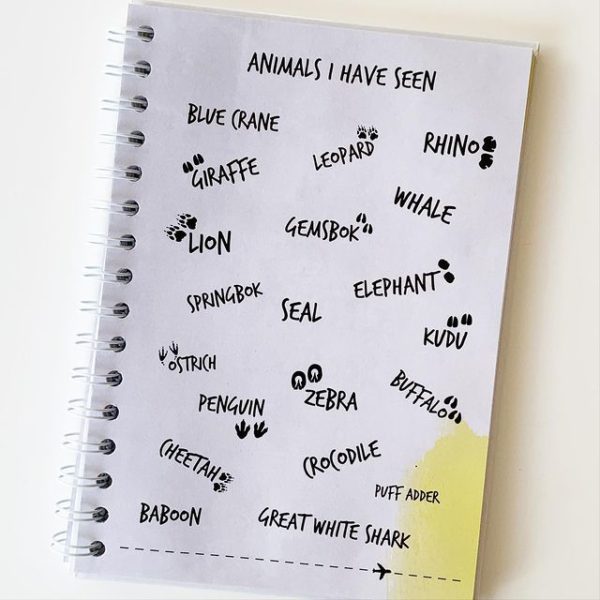 ANIMALS I HAVE SEEN
BLUE CRANE
LEOPARD
RHINO
GIRAFFE
WHALE
LION
GEMSBOK
ELEPHANT
SPRINGBOK
SEAL
KUDU
OSTRICH
PENGUIN
ZEBRA
BUFFALO
CHEETAH
CROCODILE
PUFF ADDER
BABOON
GREAT WHITE SHARK